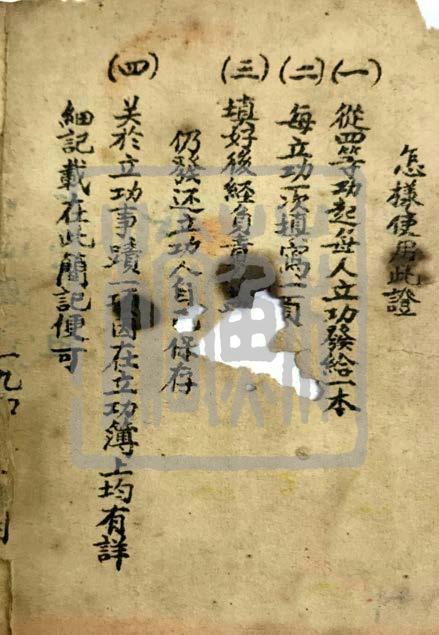 怎樣使用此證
(一)從四等功起每人立功發給一本
(二)每立功一次填寫一頁
(三)填好後經負責
仍發还立功人自己保存
(四)关於立功事蹟一項因在立功簿上均有詳
細記載在此簡記便可
一九
月